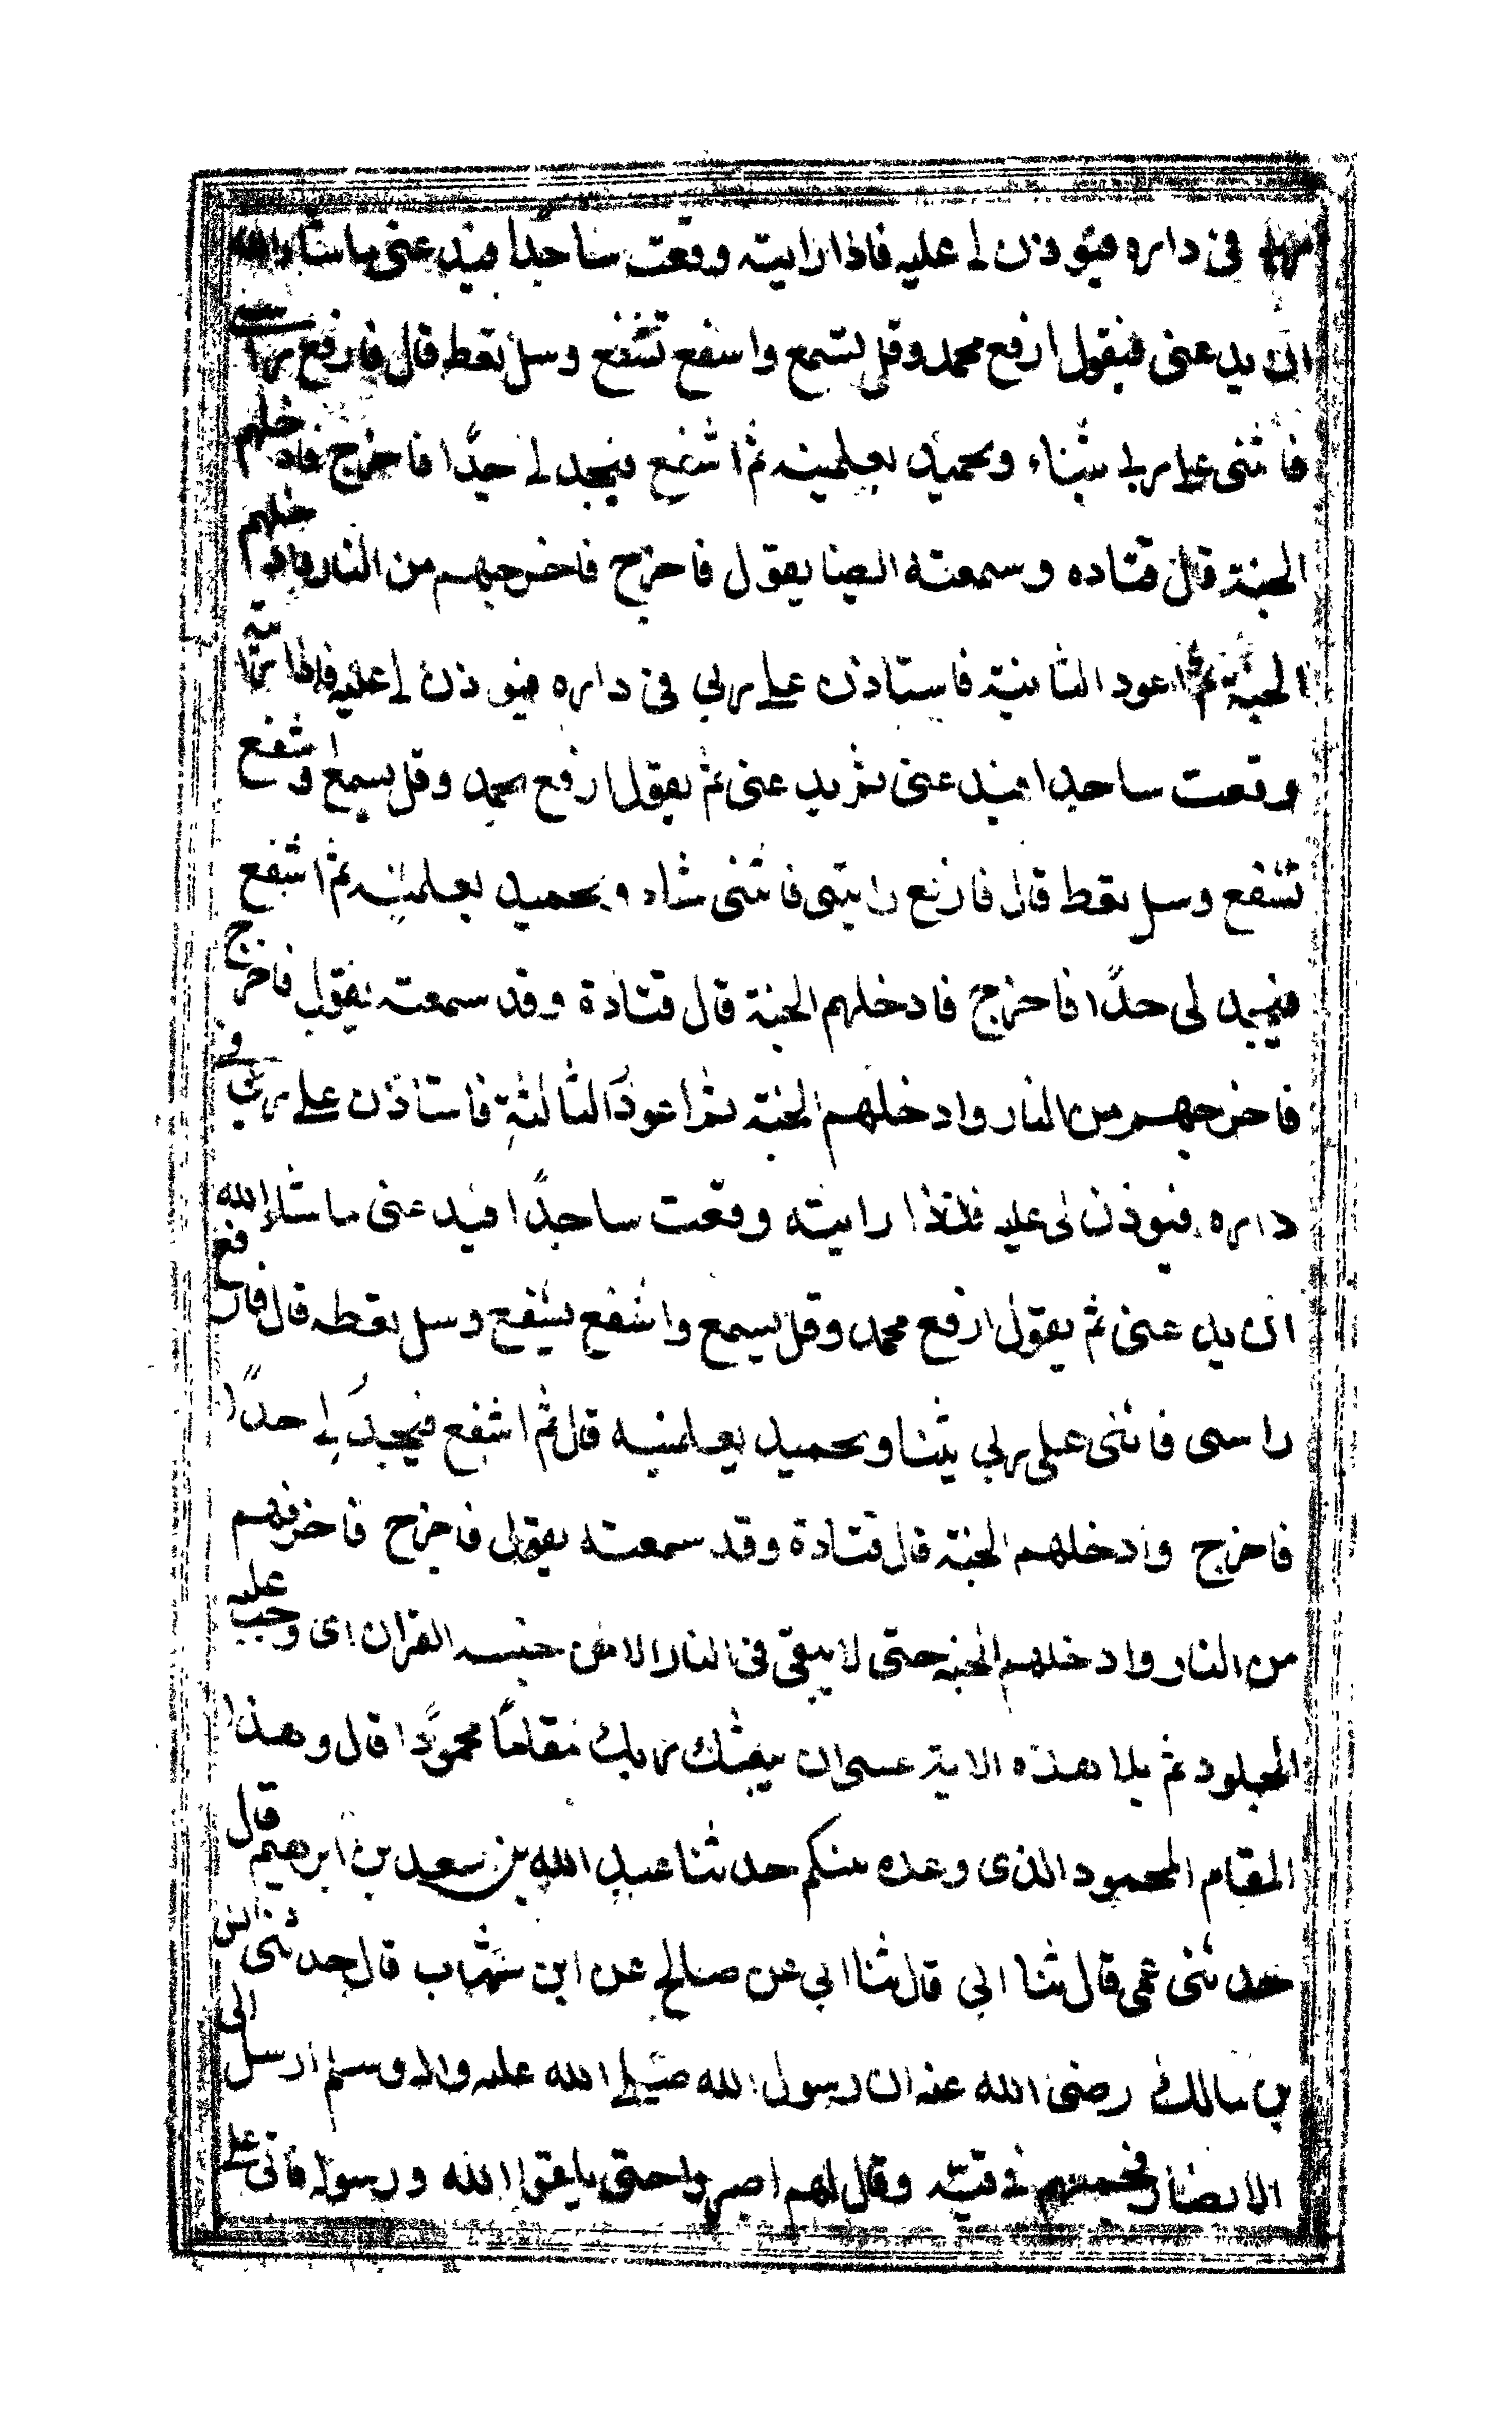 ربي في داره فيوذن لي عليه فاذا رايته وقعت ساجدا فيدعني ما شاء الله
ان يدعني فيقول ارفع محمد وقل تسمع واشفع تشفع وسل تعط قال فارفع راسي
فأثني علي ربي بثناء وتحميد يعلمنيه ثم اشفع فيحد لي حدًّا فاخرج فادخلهم
الجنة قال قتاده وسمعته ايضا يقول فاخرج فاخرجهم من النار وادخلهم
الجنة ثم اعود الثانية فاستاذن علي ربي في داره فيوذن لي عليه فاذا رايته
وقعت ساجدا فيدعني ثم يدعني ثم يقول ارفع محمد وقل يسمع واشفع
تشفع وسل تعط قال فارفع رايتي فاثني ثناء وبحميد يعلمنيه ثم اشفع
فيحد لي حدًّا فاخرج فادخلهم الجنة قال قتادة وقد سمعته يقول فاخرج
فاخرجهم من النار وادخلهم الجنة ثم اعود الثالثة فاستاذن علي ربي في
داره فيوذن لي عليه فاذا رايته وقعت ساجدًا فيدعني ما شاء الله
ان يدعني ثم يقول ارفع محمد وقل يسمع واشفع يشفع وسل تعطه قال فارفع
راسي فاثني علي ربي بثنا وتحميد يعلمنيه قال ثم اشفع فيحد لي حدًّا
فاخرج وادخلهم الجنة قال قتادة وقد سمعته يقول فاخرج فاخرجهم
من النار وادخلهم الجنة حتى لا يبقى في النار الا من حبسه القران اي وجب عليه
الخلود ثم تلا هذه الاية عسى ان يبعثك ربك مقامًا محمودًا قال وهذا
المقام المحمود الذي وعده منكم حدثنا عبيد الله بن سعد بن ابرهيم قال
حدثني عمي قال ثنا ابي قال ثنا ابي عن صالح عن ابن شهاب قال حدثني انس
بن مالك رضى الله عنه ان رسول الله صلي الله عليه واله وسلم ارسل الى
الانصار فجمعهم في قبته وقال لهم اصبروا حتى تلقوا الله ورسوله فاني علي